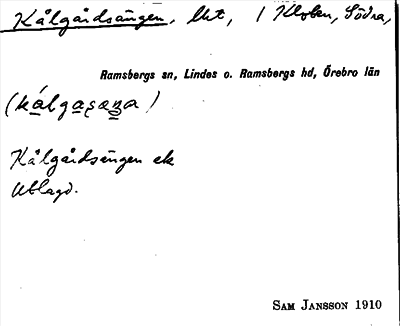 Kålgårdsängen, Urt, / Kloten, Södra,
Ramsbergs sn, Lindes o. Ramsbergs hd, Örebro län
Kålgårdsängen ek
Utlagd.
SAM JANSSON 1910